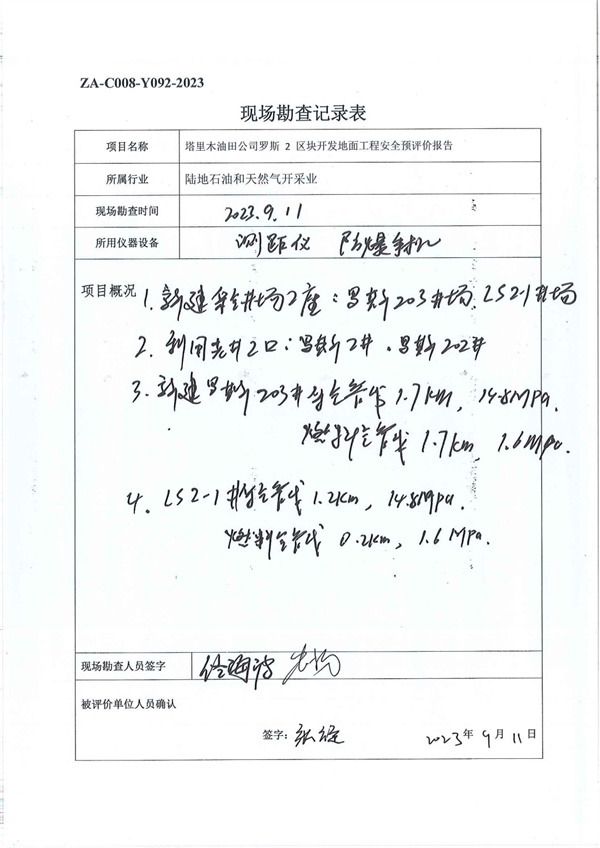 ZA-C008-Y092-2023
现场勘查记录表
项目名称 塔里木油田公司罗斯 2 区块开发地面工程安全预评价报告
所属行业 陆地石油和天然气开采业
现场勘查时间 2023.9.11
所用仪器设备 测距仪 防爆手机
项目概况 1. 新建采气井场2座：罗斯203井场、LS2-1井场
2. 利用老井2口：罗斯2井、罗斯202井
3. 新建罗斯203井集气管线1.7km，14.8MPa.
燃料气管线1.7km，1.6MPa.
4. LS2-1井集气管线1.2km，14.8MPa.
燃料气管线 0.2km，1.6MPa.
现场勘查人员签字
被评价单位人员确认
签字：
2023年9月11日